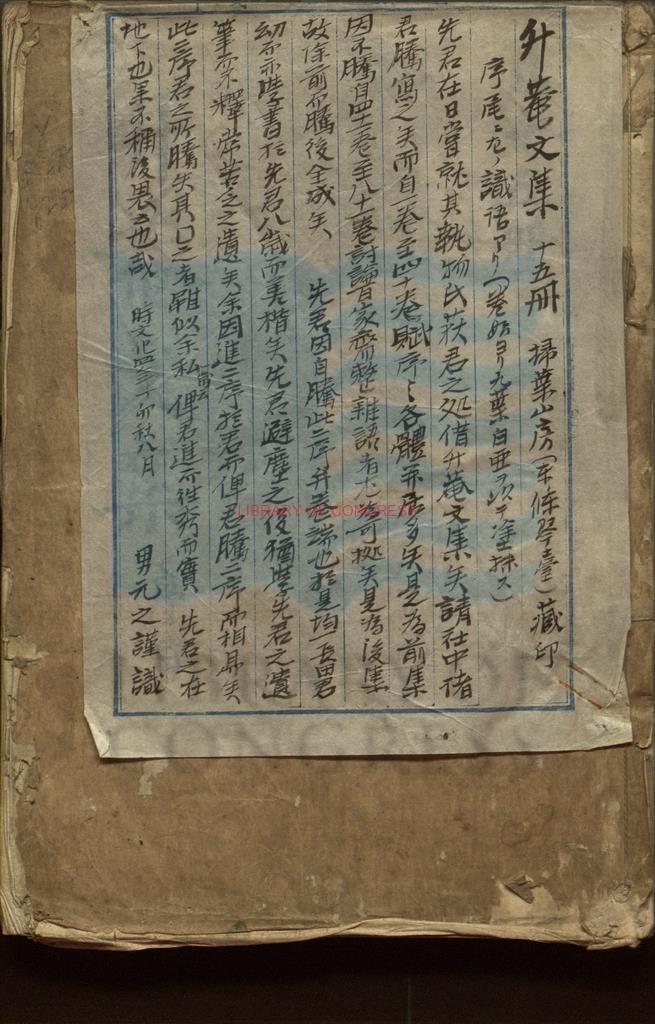 升菴文集 十五冊 掃葉山房(東條琴臺)藏印
序尾ニ左ノ識語アリ(巻始ヨリ九葉白亜ヲ以テ塗抹ス)
先君在日嘗就其執物氏萩君之処借升菴文集矣請在中偖
君騰寫之矣而自一卷至四十卷賦序〻各體并序多矣是為前集
因不騰自四十一卷至八十一卷討論百家齊整雜語者尤可拠矣是為後集
故除前而騰後全成矣 先君因自騰此二序并卷端也於是均一長田君
幼而亦學書於先君八歲而善楷矣先君避塵之後猶學先君之遺
筆而不釋常苦乏之遺矣余因進二序於君而俾君騰二序而相昇矣
此二序君之所騰矣具口之者雖似余私 俾君進而往秀而實 先君之在
地下也果不稱後畏云也哉 時文化四年丁卯秋八月 男元之謹識
LIBRARY OF CONGRESS